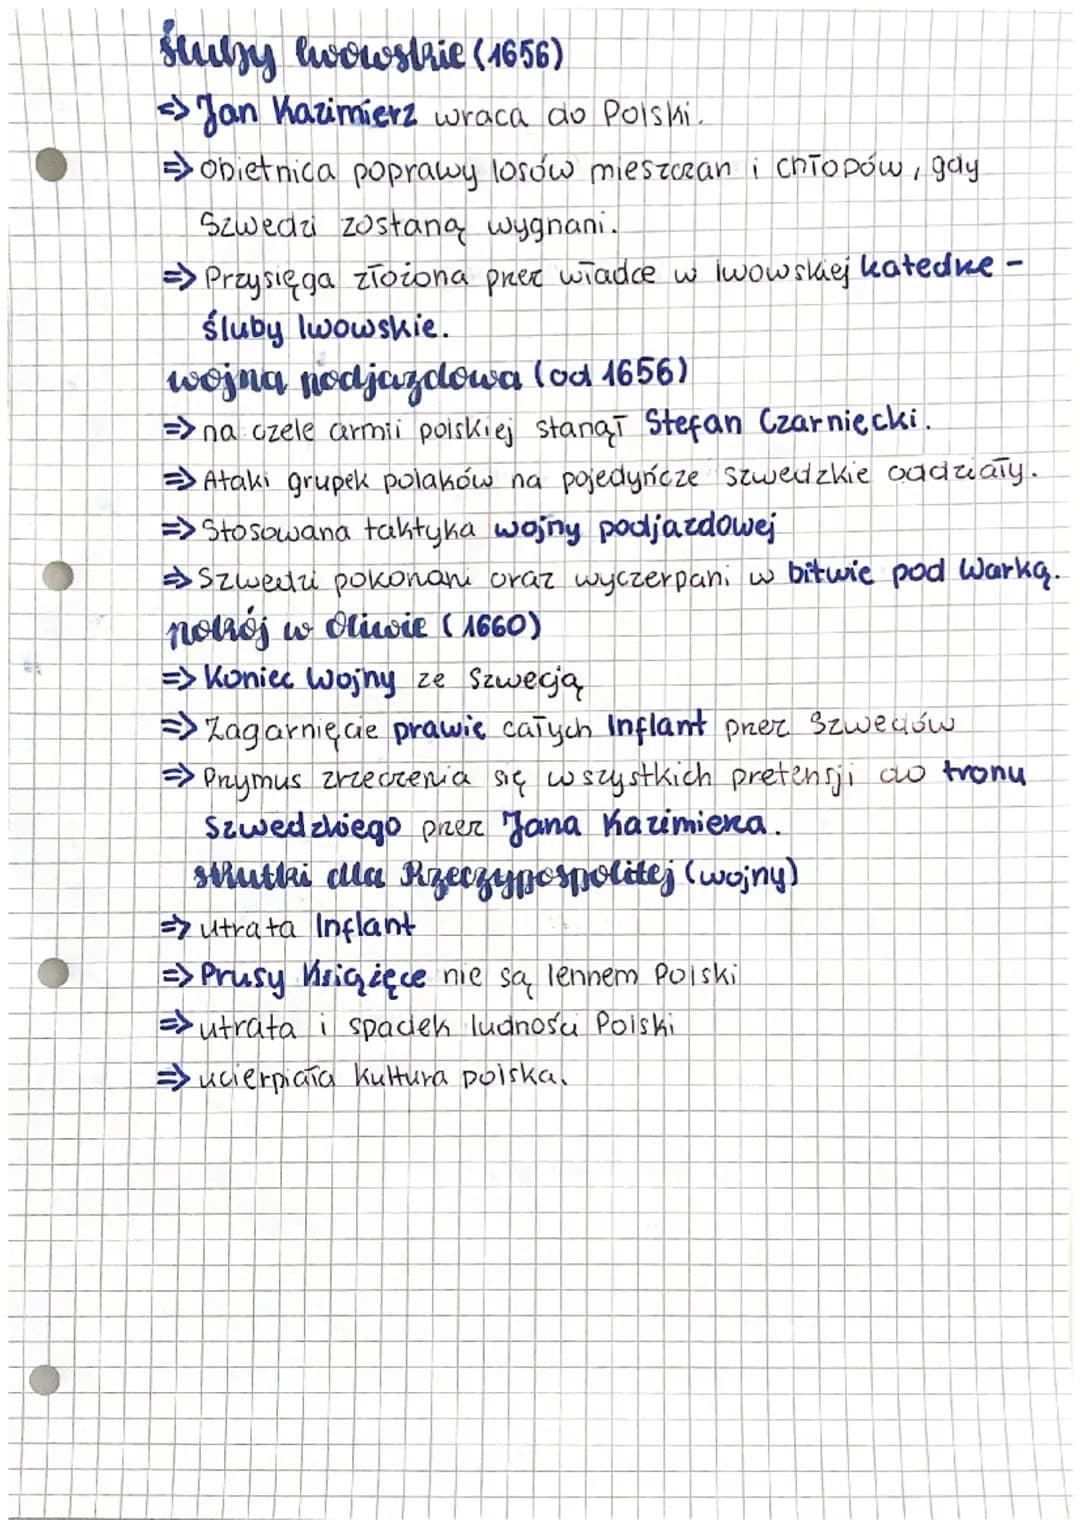 śluby lwowskie (1656)
=> Jan Kazimierz wraca do Polski.
=> Obietnica poprawy losów mieszczan i chłopów, gdy
Szwedzi zostaną wygnani.
=> Przysięga złożona przez władce w lwowskiej katedrze -
śluby lwowskie.
wojna podjazdowa (od 1656)
=> na czele armii polskiej stanął Stefan Czarniecki.
=> Ataki grupek polaków na pojedyńcze szwedzkie oddziały.
=> Stosowana taktyka wojny podjazdowej
=> Szwedzi pokonani oraz wyczerpani w bitwie pod Warką.
pokój w Oliwie (1660)
=> Koniec Wojny ze Szwecją
=> Zagarnięcie prawie całych Inflant przez Szwedów
=> Przymus zrzeczenia się wszystkich pretensji do tronu
Szwedzkiego przez Jana Kazimierza.
skutki dla Rzeczypospolitej (wojny)
=> utrata Inflant
=> Prusy Książęce nie są lennem Polski
=> utrata i spadek ludności Polski
=> ucierpiała kultura polska.